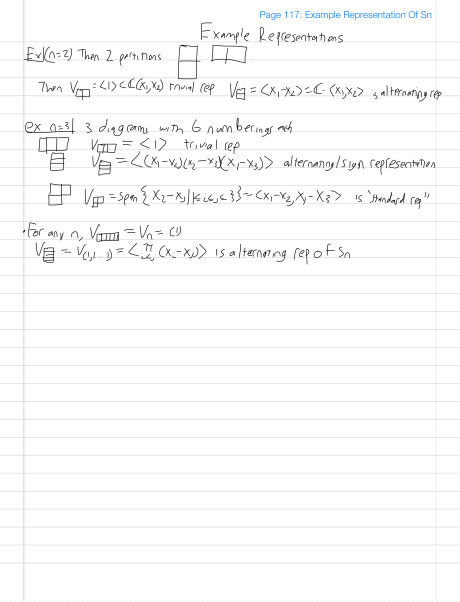 Page 117: Example Representation Of Sn
Example Representations
Ex|(n=2) Then 2 partitions
Then V = <1> ⊂ ℂ(x₁,x₂) trivial rep V = <x₁-x₂> = ℂ· (x₁-x₂) is alternating rep
ex n=3| 3 diagrams with 6 numberings each
V = <1> trivial rep
V = <(x₁-x₂)(x₂-x₃)(x₁-x₃)> alternating/sign representation
V = span{x₂-xⱼ | 1≤i<j≤3} = <x₁-x₂, x₁-x₃> is "standard rep"
• For any n, V = Vₙ = (1)
V = V(1,1...1) = <π i<j (xᵢ-xⱼ)> is alternating rep of Sn